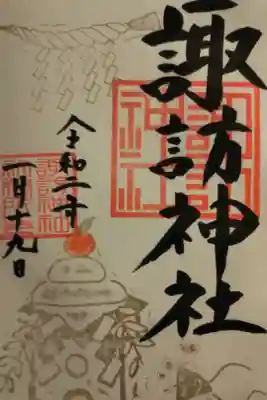 諏訪神社
令和二年
一月十九日